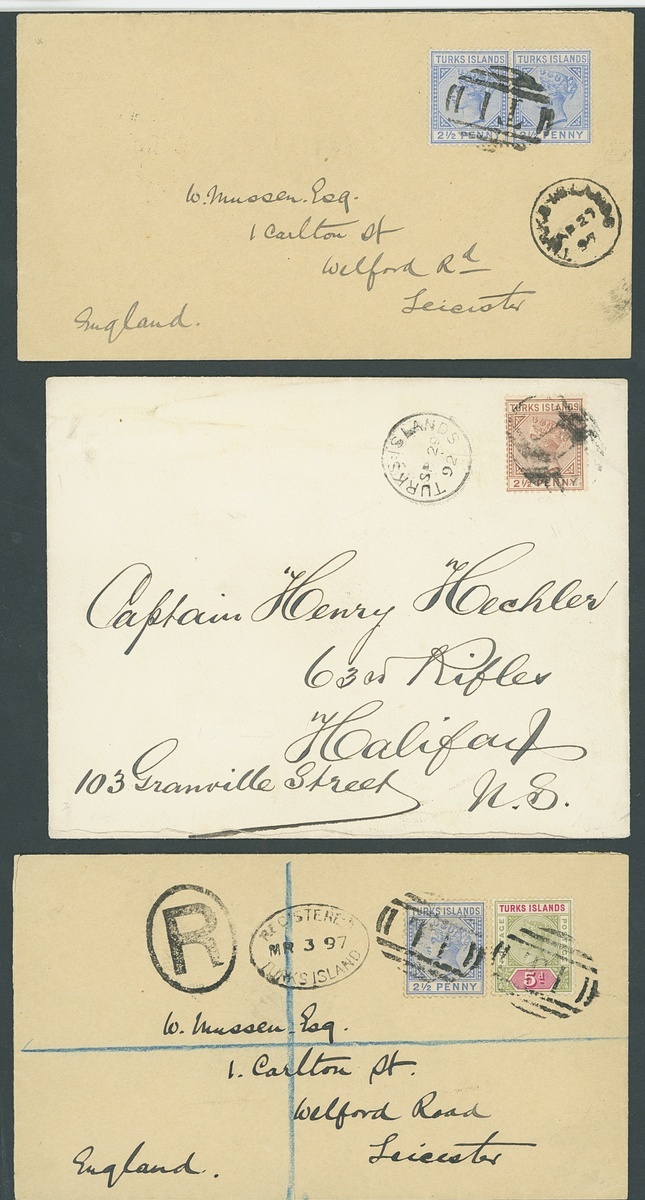 TURKS ISLANDS TURKS ISLANDS
2½ PENNY 2½ PENNY
TURKS ISLANDS
AP 27
97
W. Mussen. Esq.
1 Carlton St
Welford Rd
Leicester
England.
TURKS ISLANDS
2½ PENNY
TURKS ISLANDS
SP 29
92
Captain Henry Hechler
63rd Rifles
Halifax
103 Granville Street N.S.
R
REGISTERED
MR 3 97
TURKS ISLAND
TURKS ISLANDS
2½ PENNY
TURKS ISLANDS
5d
W. Mussen. Esq.
1. Carlton St.
Welford Road
Leicester
England.